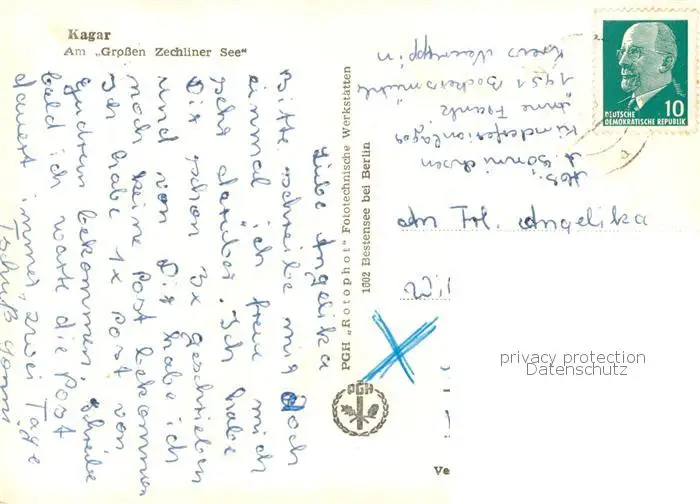 Kagar
Am „Großen Zechliner See“
Liebe Angelika
Bitte schreibe mir doch
einmal ich freu mich
sehr darüber. Ich habe
Dir schon 3x geschrieben
und von Dir habe ich
noch keine Post bekommen
Ich habe 1x Post von
Gudrun bekommen, schreibe
bald ich warte die Post
dauert immer zwei Tage
Tschüß
PGH „Rotophot“ Fototechnische Werkstätten
1602 Bestensee bei Berlin
PGH
Abs.
Kinderferienlager
"Anne Frank"
1951
Kreis Neuruppin
10
DEUTSCHE
DEMOKRATISCHE REPUBLIK
An Frl. Angelika
privacy protection
Datenschutz
Ve